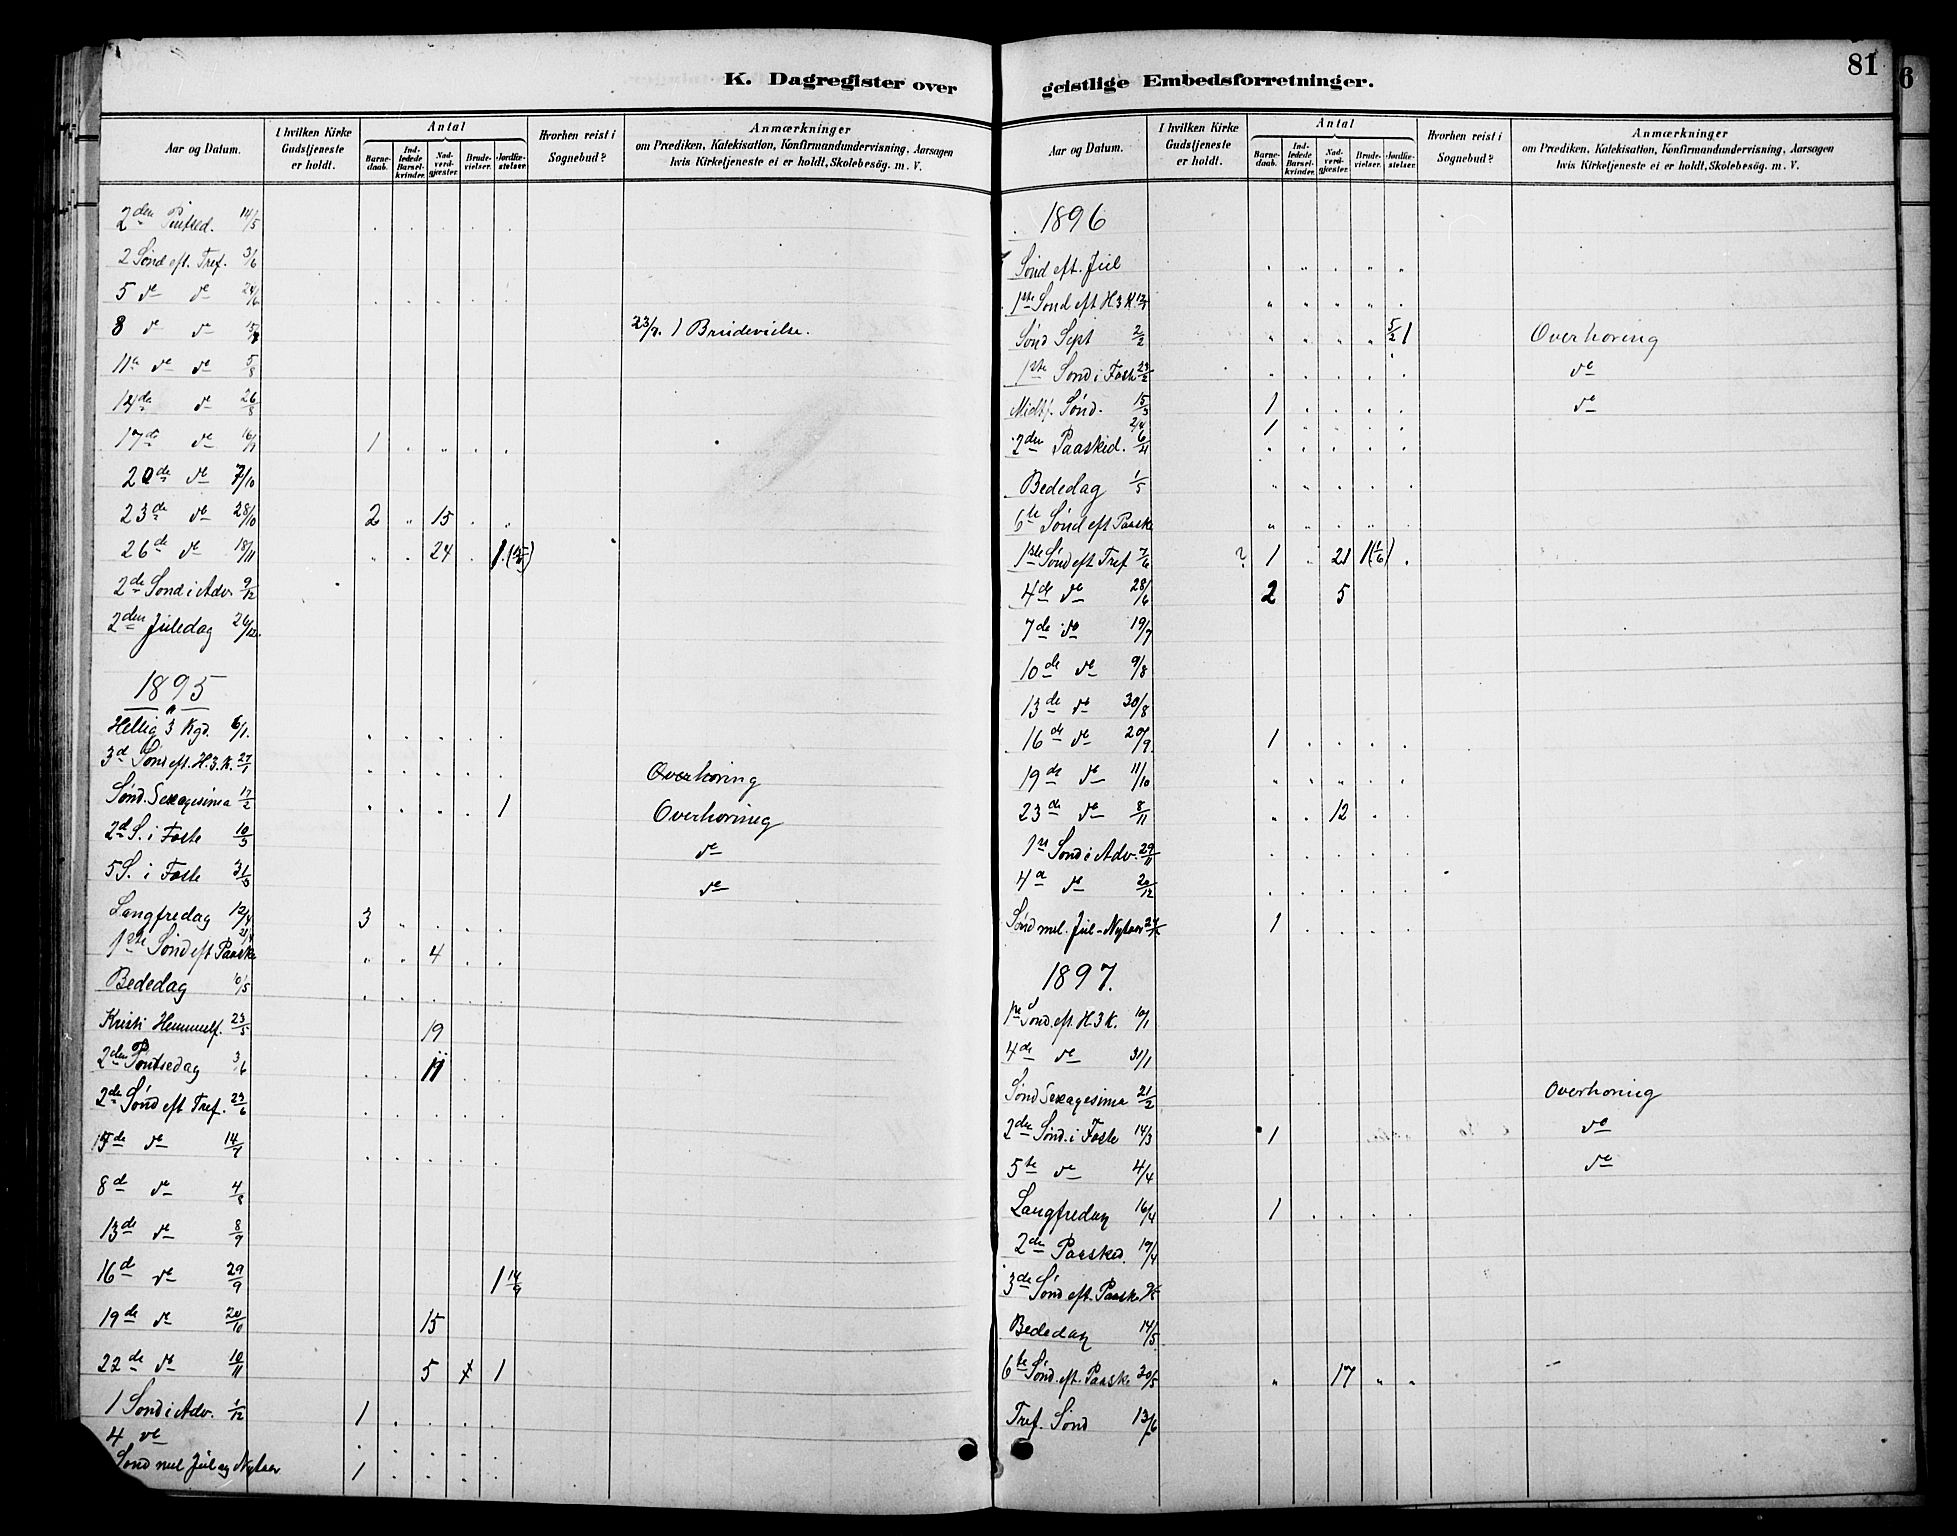 K. Dagregister over
Aar og Datum.
I hvilken Kirke Gudstjeneste er holdt.
Antal
Barnedaab.
Indledede Barselkvinder.
Nadverdgjæster.
Brudevielser.
Jordfæstelser.
Hvorhen reist i Sognebud?
Anmærkninger
om Prædiken, Katekisation, Konfirmandundervisning, Aarsagen
hvis Kirketjeneste ei er holdt, Skolebesög. m. V.
2den Pintsed. 14/5
2 Sønd eft. Tref. 3/6
5 do do 24/6
8 do do 15/7 23/7. 1 Brudevielse.
11te do do 5/8
14de do 26/8
17de do 16/9 1
20de do 7/10
23de do 28/10 2 " 15 . "
26de do 18/11 " . 24 . 1
2de Sønd i Adv. 9/12
2den Juledag 26/12.
1895
Hellig 3 Kgd. 6/1.
3d Sønd eft. H. 3. K. 27/1 Overhøring
Sønd. Sexagesima 17/2 1 Overhøring
2d S. i Faste 10/3 do
5 S. i Faste 31/3 do
Langfredag 12/4 3
1ste Sønd eft Paaske 21/4 " . 4
Bededag 10/5
Kristi Himmelf. 23/5 19
2den Pintsedag 3/6 11
2de Sønd eft Tref. 23/6
5de do 14/7
8d do 4/8
13de do 8/9
16d do 29/9 1 14/9
19de do 20/10 15
22de do 10/11 5 1
1 Sønd i Adv. 1/12 1
4 do
Sønd mel Jul og Nytaar 1
geistlige Embedsforretninger.
81
6
Aar og Datum.
I hvilken Kirke Gudstjeneste er holdt.
Antal
Barnedaab.
Indledede Barselkvinder.
Nadverdgjæster.
Brudevielser.
Jordfæstelser.
Hvorhen reist i Sognebud?
Anmærkninger
om Prædiken, Katekisation, Konfirmandundervisning, Aarsagen
hvis Kirketjeneste ei er holdt, Skolebesög. m. V.
1896
Sønd eft. Jul
1ste Sønd eft H 3 K. 12/1
Sønd Sept 2/2 5/2 1 Overhøring
1ste Sønd i Faste 23/2 do
Midtf. Sønd. 15/3 1 do
2/4 1
2den Paasked. 6/4
Bededag 1/5
6te Sønd eft Paaske
1ste Sønd eft Tref 7/6 ? 1 . 21 1(1/6)
4de do 28/6 2 5
7de do 19/7
10de do 9/8
13de do 30/8
16de do 20/9 1
19de do 11/10
23de do 8/11 " . 12
1ste Sønd i Adv. 29/11
4d do 20/12
Sønd mel. Jul-Nytaar 1
1897.
1ste Sønd. eft. H. 3 K. 10/1
4de do 31/1
Sønd Sexagesima 21/2 Overhøring
2den Sønd. i Faste 14/3 1 do
5te do 4/4 do
Langfredag 16/4 1
2den Paasked. 19/4
3de Sønd eft. Paaske 9/5
Bededag 14/5
6te Sønd. eft. Paaske 30/5 " 17 " "
Tref. Sønd 13/6